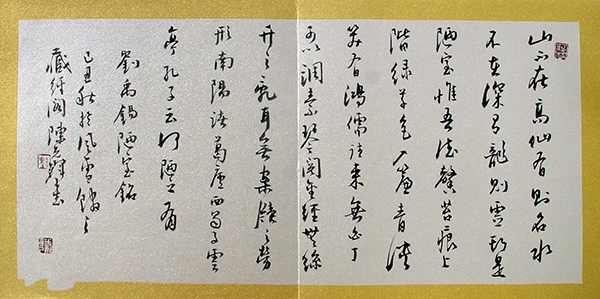 山不在高仙有則名水
不在深有龍則靈斯是
陋室惟吾德馨苔痕上
階綠草色入簾青談
笑有鴻儒往來無白丁
可以調素琴閱金經無絲
竹之亂耳無案牘之勞
形南陽諸葛廬西蜀子雲
亭孔子云何陋之有
劉禹錫陋室銘
己丑秋於風雪
藏經閣陳書